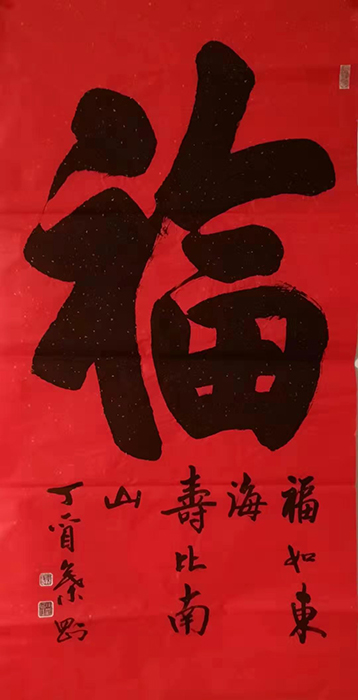 福
福如東
海
壽比南
山
丁酉